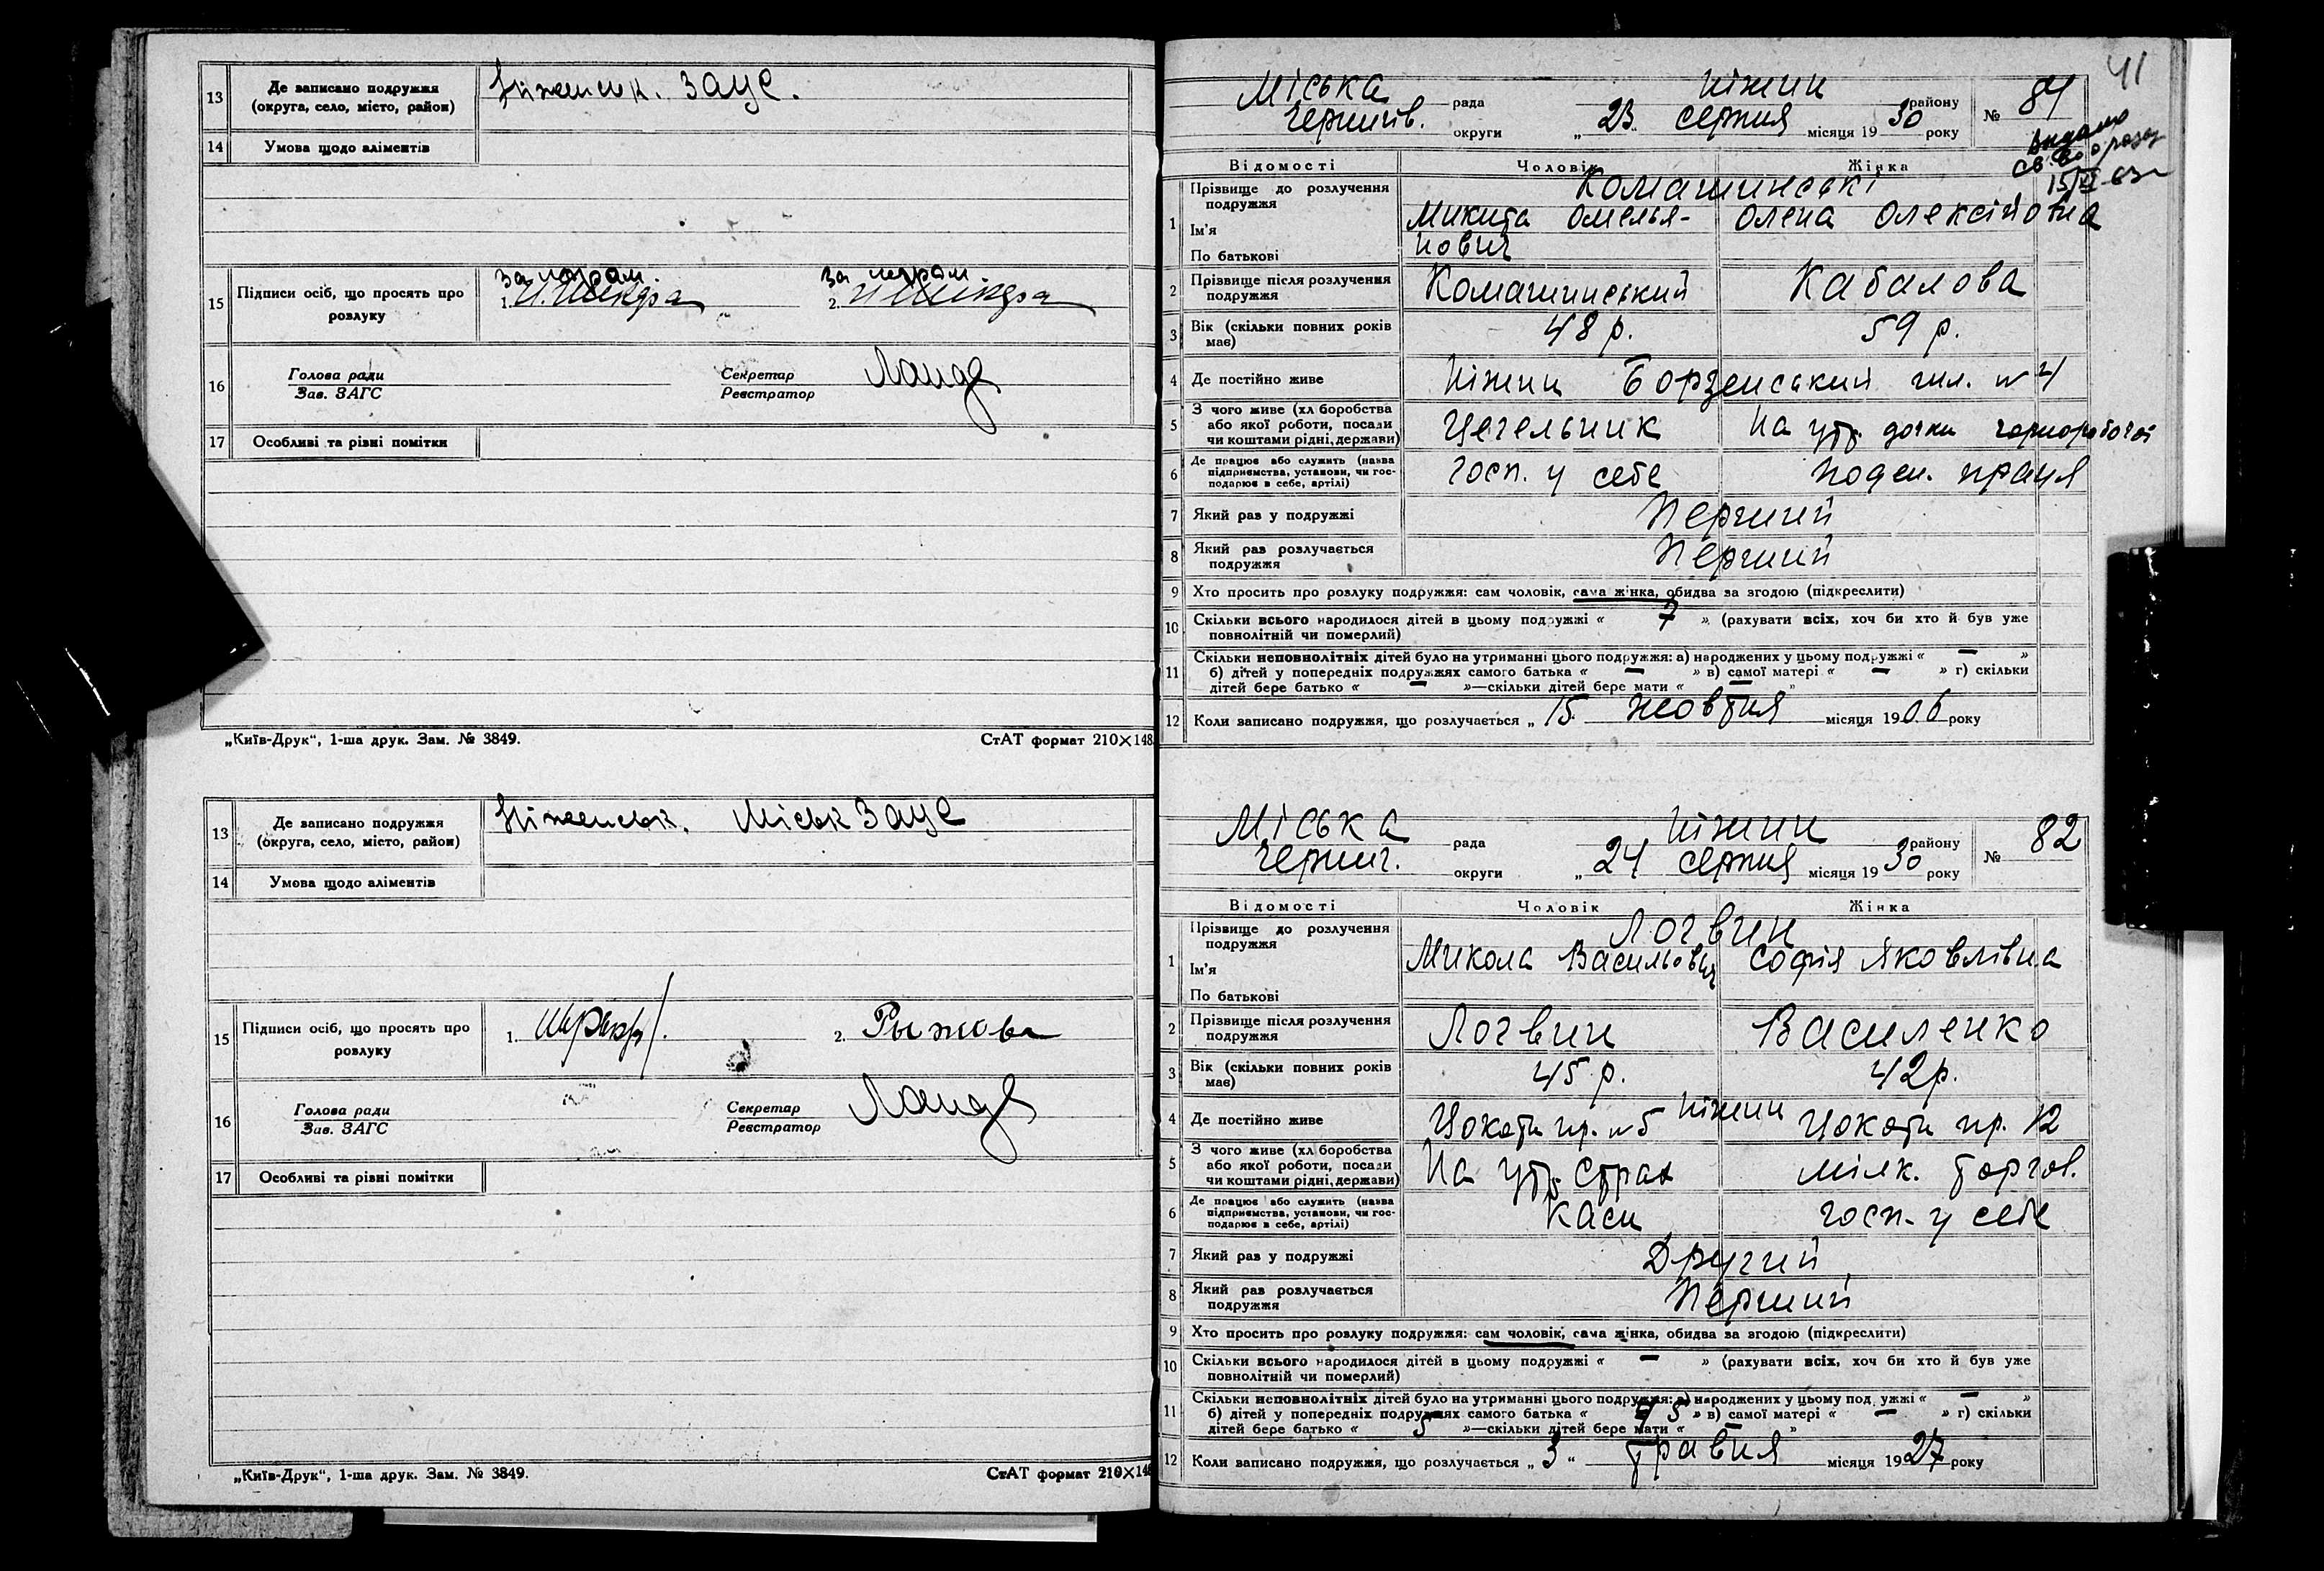 13 Де записано подружжя (округа, село, місто, район) Ніженськ. ЗАЦС.
14 Умова щодо аліментів
за неграм. за неграм.
15 Підписи осіб, що просять про розлуку 1. 2.
16 Голова ради Зав. ЗАГС Секретар Реєстратор
17 Особливі та різні помітки
„Київ-Друк“, 1-ша друк. Зам. № 3849. СтАТ формат 210×148.
13 Де записано подружжя (округа, село, місто, район) Ніженськ. Міськ ЗАЦС
14 Умова щодо аліментів
15 Підписи осіб, що просять про розлуку 1. 2. Рыжова
16 Голова ради Зав. ЗАГС Секретар Реєстратор
17 Особливі та різні помітки
„Київ-Друк“, 1-ша друк. Зам. № 3849. СтАТ формат 210×148
41
Міська рада Ніжин району № 81
Чернигів. округи „ 23 „ серпня місяця 1930 року
Видано
15/VI-63г
Відомості Чоловік Жінка
1 Прізвище до розлучення подружжя Комашинські
Ім'я Микита Омелья- Олена Олексійовна
По батькові нович
2 Прізвище після розлучення подружжя Комашинський Кабалова
3 Вік (скільки повних років має) 48 р. 59 р.
4 Де постійно живе Ніжин Борзенський шл. № 4
5 З чого живе (хліборобства або якої роботи, посади чи коштами рідні, держави) Цегельник На утр. дочки чорноробочої
6 Де працює або служить (назва підприємства, установи, чи господарює в себе, артілі) Госп. у себе поден. праця
7 Який раз у подружжі Перший
8 Який раз розлучається подружжя Перший
9 Хто просить про розлуку подружжя: сам чоловік, сама жінка, обидва за згодою (підкреслити)
10 Скільки всього народилося дітей в цьому подружжі « 7 » (рахувати всіх, хоч би хто й був уже повнолітній чи померлий)
11 Скільки неповнолітніх дітей було на утриманні цього подружжя: а) народжених у цьому подружжі « — »
б) дітей у попередніх подружжях самого батька « — » в) самої матері « — » г) скільки
дітей бере батько « — »—скільки дітей бере мати « — »
12 Коли записано подружжя, що розлучається „ 15 жовтня місяця 1906 року
Міська рада Ніжин району № 82
Черниг. округи „ 24 серпня місяця 1930 року
Відомості Чоловік Жінка
1 Прізвище до розлучення подружжя Логвин
Ім'я Микола Васильович Софія Яковлівна
По батькові
2 Прізвище після розлучення подружжя Логвин Василенко
3 Вік (скільки повних років має) 45 р. 42 р.
4 Де постійно живе пр. № 5 Ніжин пр. 12
5 З чого живе (хліборобства або якої роботи, посади чи коштами рідні, держави) На утр. страх мілк. торгов.
6 Де працює або служить (назва підприємства, установи, чи господарює в себе, артілі) каси госп. у себе
7 Який раз у подружжі Другий
8 Який раз розлучається подружжя Перший
9 Хто просить про розлуку подружжя: сам чоловік, сама жінка, обидва за згодою (підкреслити)
10 Скільки всього народилося дітей в цьому подружжі « — » (рахувати всіх, хоч би хто й був уже повнолітній чи померлий)
11 Скільки неповнолітніх дітей було на утриманні цього подружжя: а) народжених у цьому подружжі « — »
б) дітей у попередніх подружжях самого батька « 5 » в) самої матері « — » г) скільки
дітей бере батько « 5 »—скільки дітей бере мати « — »
12 Коли записано подружжя, що розлучається „ 3 “ травня місяця 1927 року